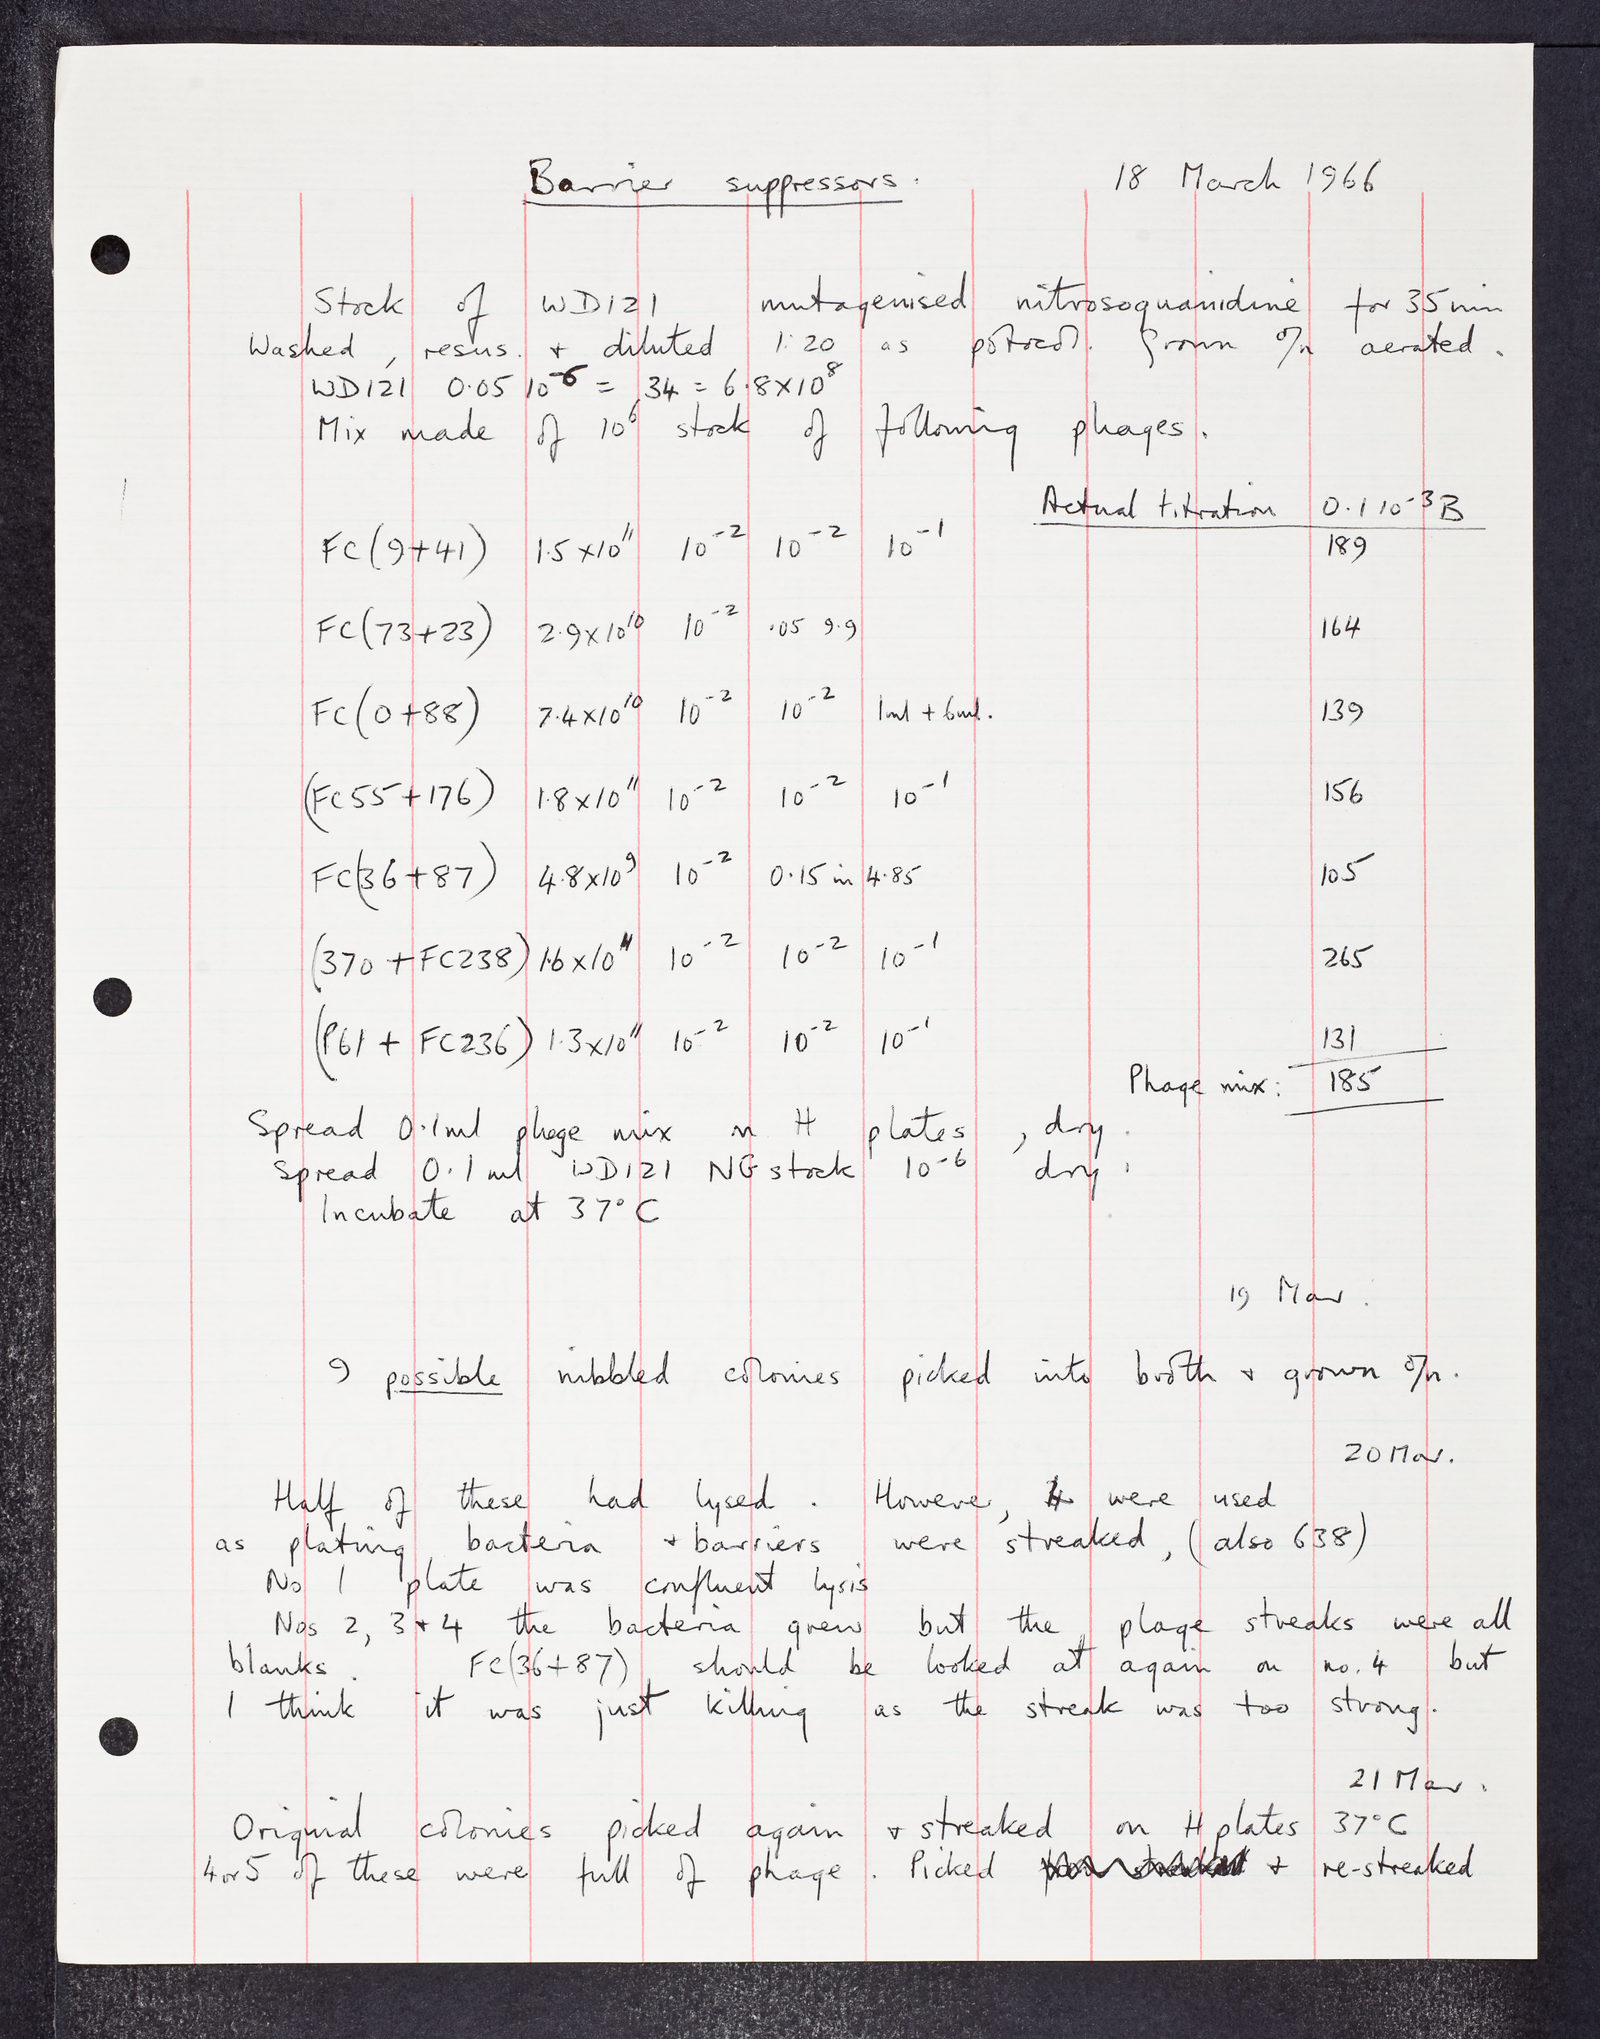 Barrier suppressors. 18 March 1966
Stock of WD121 mutagenised nitrosoguanidine for 35 min
Washed, resus. + diluted 1:20 as Grown o/n aerated.
WD121 0.05 10⁻⁶ = 34 = 6.8×10⁸
Mix made of 10⁶ stock of following phages.
Actual titration 0.1 10⁻³ B
FC(9+41) 1.5×10¹¹ 10⁻² 10⁻² 10⁻¹ 189
FC(73+23) 2.9×10¹⁰ 10⁻² .05 9.9 164
FC(0+88) 7.4×10¹⁰ 10⁻² 10⁻² 1ml + 6ml. 139
(FC55+176) 1.8×10¹¹ 10⁻² 10⁻² 10⁻¹ 156
FC(36+87) 4.8×10⁹ 10⁻² 0.15 in 4.85 105
(370 + FC238) 1.6×10¹¹ 10⁻² 10⁻² 10⁻¹ 265
(P61 + FC236) 1.3×10¹¹ 10⁻² 10⁻² 10⁻¹ 131
Phage mix: 185
Spread 0.1ml phage mix on H plates, dry.
Spread 0.1 ml WD121 NG stock 10⁻⁶ dry.
Incubate at 37°C
19 Mar.
9 possible nibbled colonies picked into broth + grown o/n.
20 Mar.
Half of these had lysed. However, 4 were used
as plating bacteria + barriers were streaked, (also 638)
No 1 plate was confluent lysis
Nos 2, 3 + 4 the bacteria grew but the phage streaks were all
blanks. FC(36+87) should be looked at again on no. 4 but
I think it was just killing as the streak was too strong.
21 Mar.
Original colonies picked again + streaked on H plates 37°C
4 or 5 of these were full of phage. Picked + re-streaked